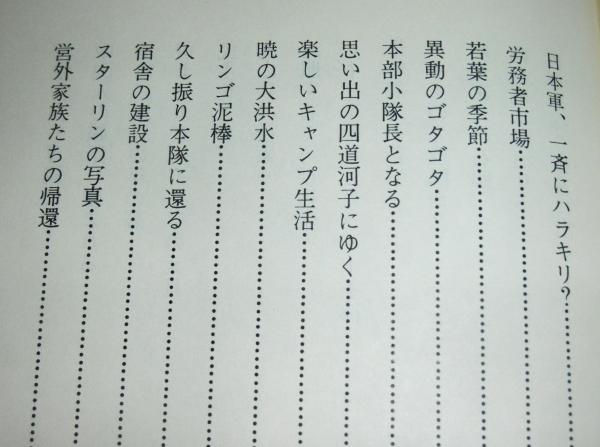 日本軍、一斉にハラキリ?
労務者市場
若葉の季節
異動のゴタゴタ
本部小隊長となる
思い出の四道河子にゆく
楽しいキャンプ生活
暁の大洪水
リンゴ泥棒
久し振り本隊に還る
宿舎の建設
スターリンの写真
営外家族たちの帰還